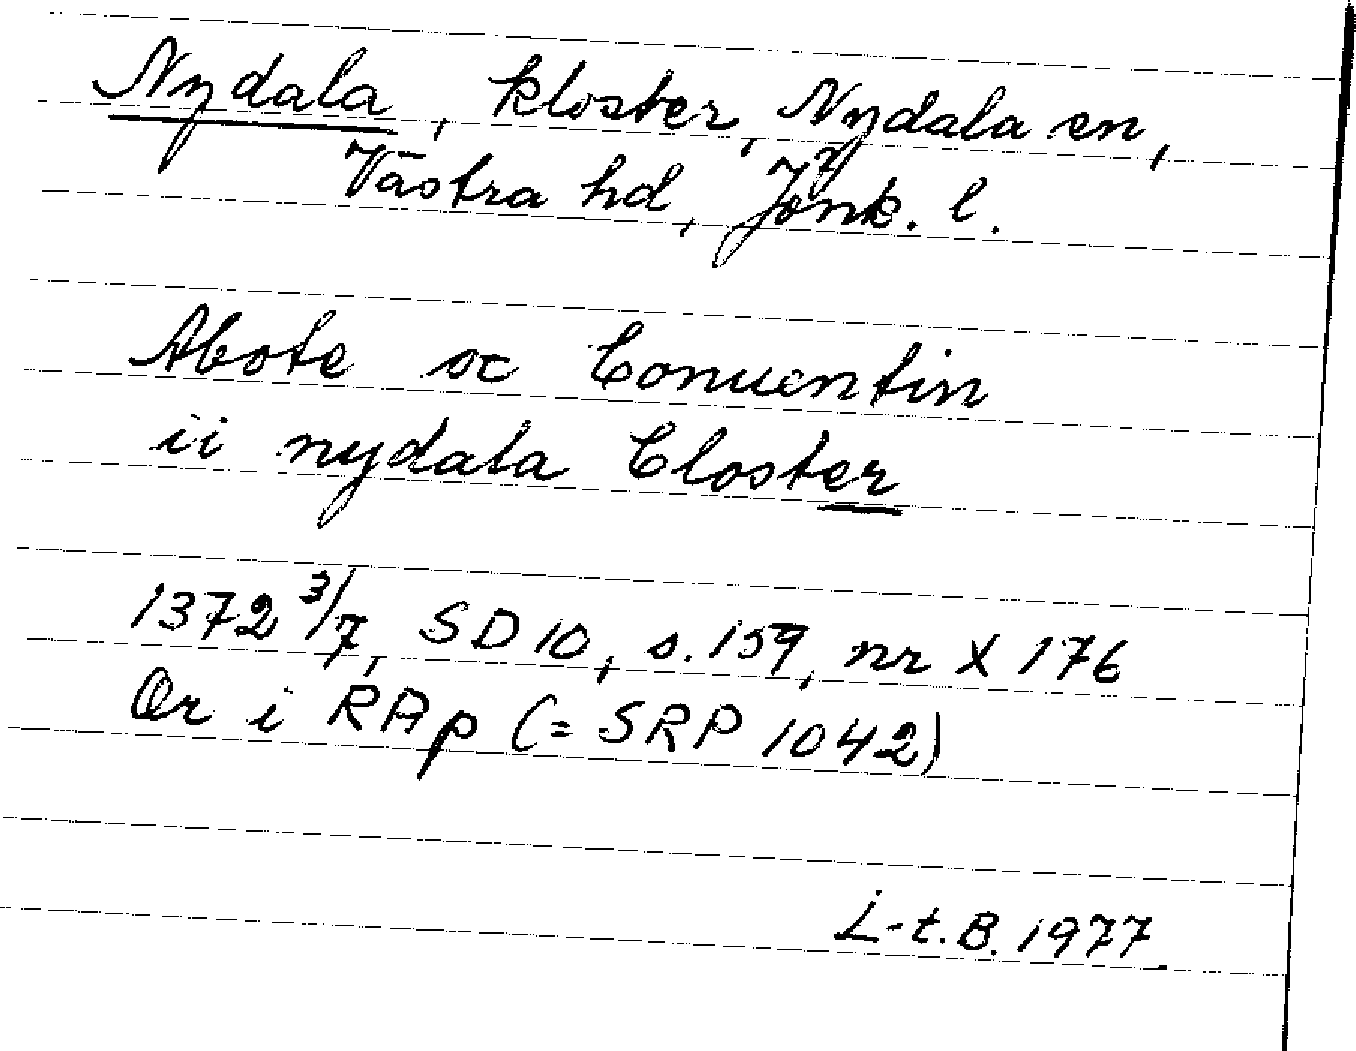 Nydala, kloster, Nydala sn,
Västra hd, Jönk. l.
Abote oc Conuentin
ii nydala Closter
1372 3/7, SD 10, s. 159, nr X 176
Or i RAp (= SRP 1042)
L-t.B. 1977